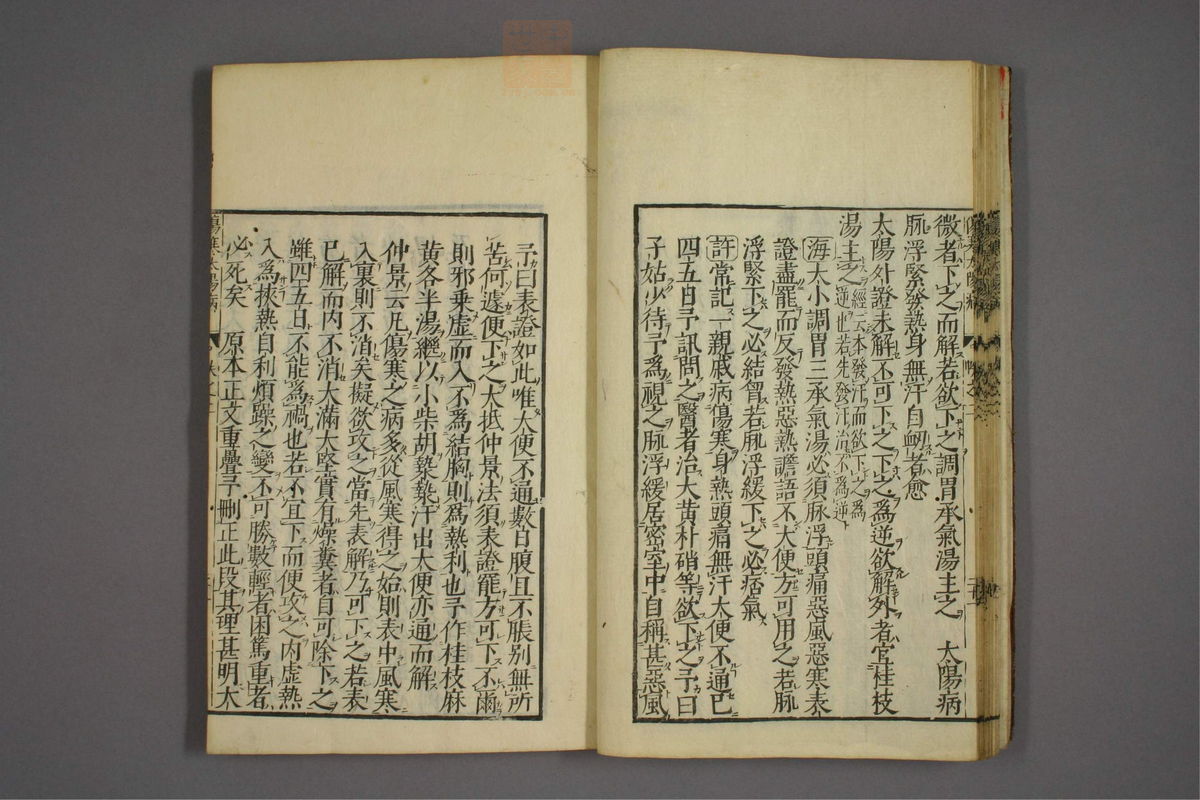 微者下之而解若欲下之調胃承氣湯主之　太陽病
脉浮緊發熱身無汗自衂者愈
太陽外證未解不可下之下之爲逆欲解外者宜桂枝
湯主之經云本發汗而欲下之爲
逆也若先發汗治不爲逆
海大小調胃三承氣湯必須脉浮頭痛惡風惡寒表
證盡罷而反發熱惡熱譫語不大便方可用之若脉
浮緊下之必結胷若脉浮緩下之必痞氣
許常記一親戚病傷寒身熱頭痛無汗大便不通已
四五日予訊問之醫者治大黄朴硝等欲下之予曰
子姑少待予爲視之脉浮緩居密室中自稱甚惡風
予曰表證如此唯大便不通數日腹且不脹别無所
苦何遽便下之大抵仲景法須表證罷方可下不爾
則邪乗虚而入不爲結胸則爲熱利也予作桂枝麻
黄各半湯繼以小柴胡漐漐汗出大便亦通而解
仲景云凡傷寒之病多從風寒得之始則表中風寒
入裏則不消矣擬欲攻之當先表解乃可下之若表
已解而内不消大滿大堅實有燥糞者自可除下之
雖四五日不能爲禍也若不宜下而便攻之内虚熱
入爲挾熱自利煩躁之變不可勝數輕者困篤重者
必死矣　原本正文重疊予刪正此段其理甚明大